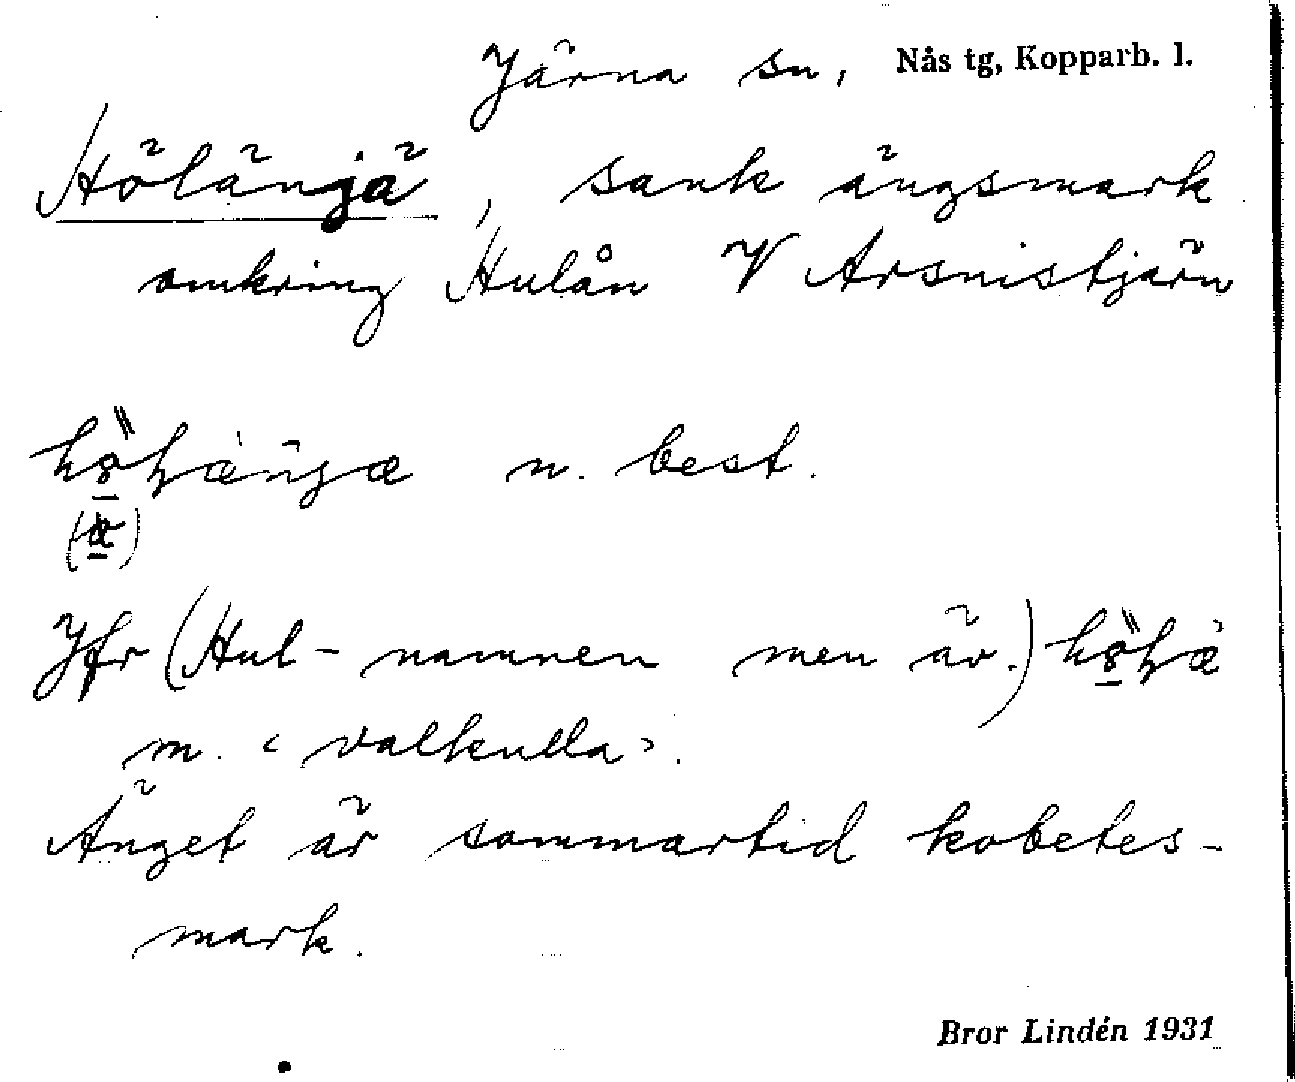 Järna sn, Nås tg, Kopparb. l.
Hölänjä, sank ängsmark
omkring Hulån V Arsnistjärn
n. best.
Jfr (Hul- namnen men äv.)
m. ‹valkulla›.
Änget är sommartid kobetes-
mark.
Bror Lindén 1931